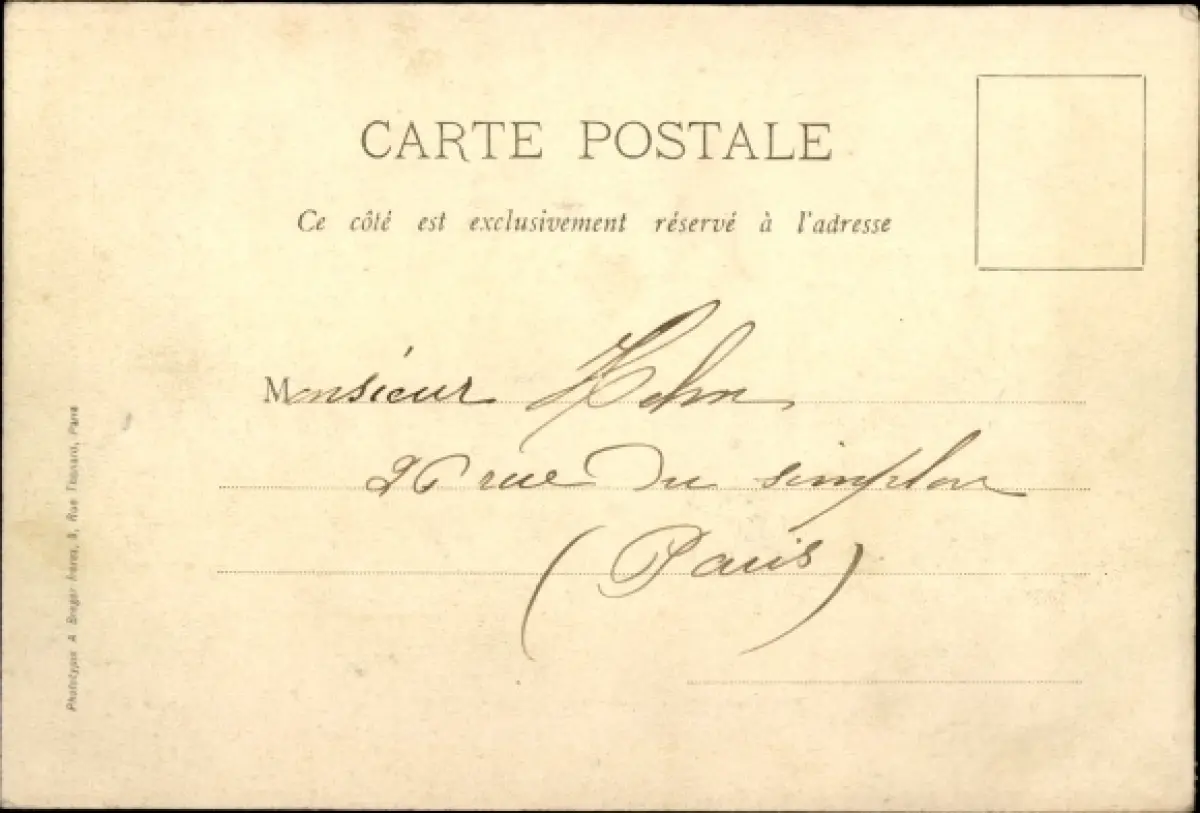 CARTE POSTALE
Ce côté est exclusivement réservé à l'adresse
Monsieur Hehn
26 rue du simplon
(Paris)
Phototypie A Bergeret frères, 9, Rue Thénard, Paris